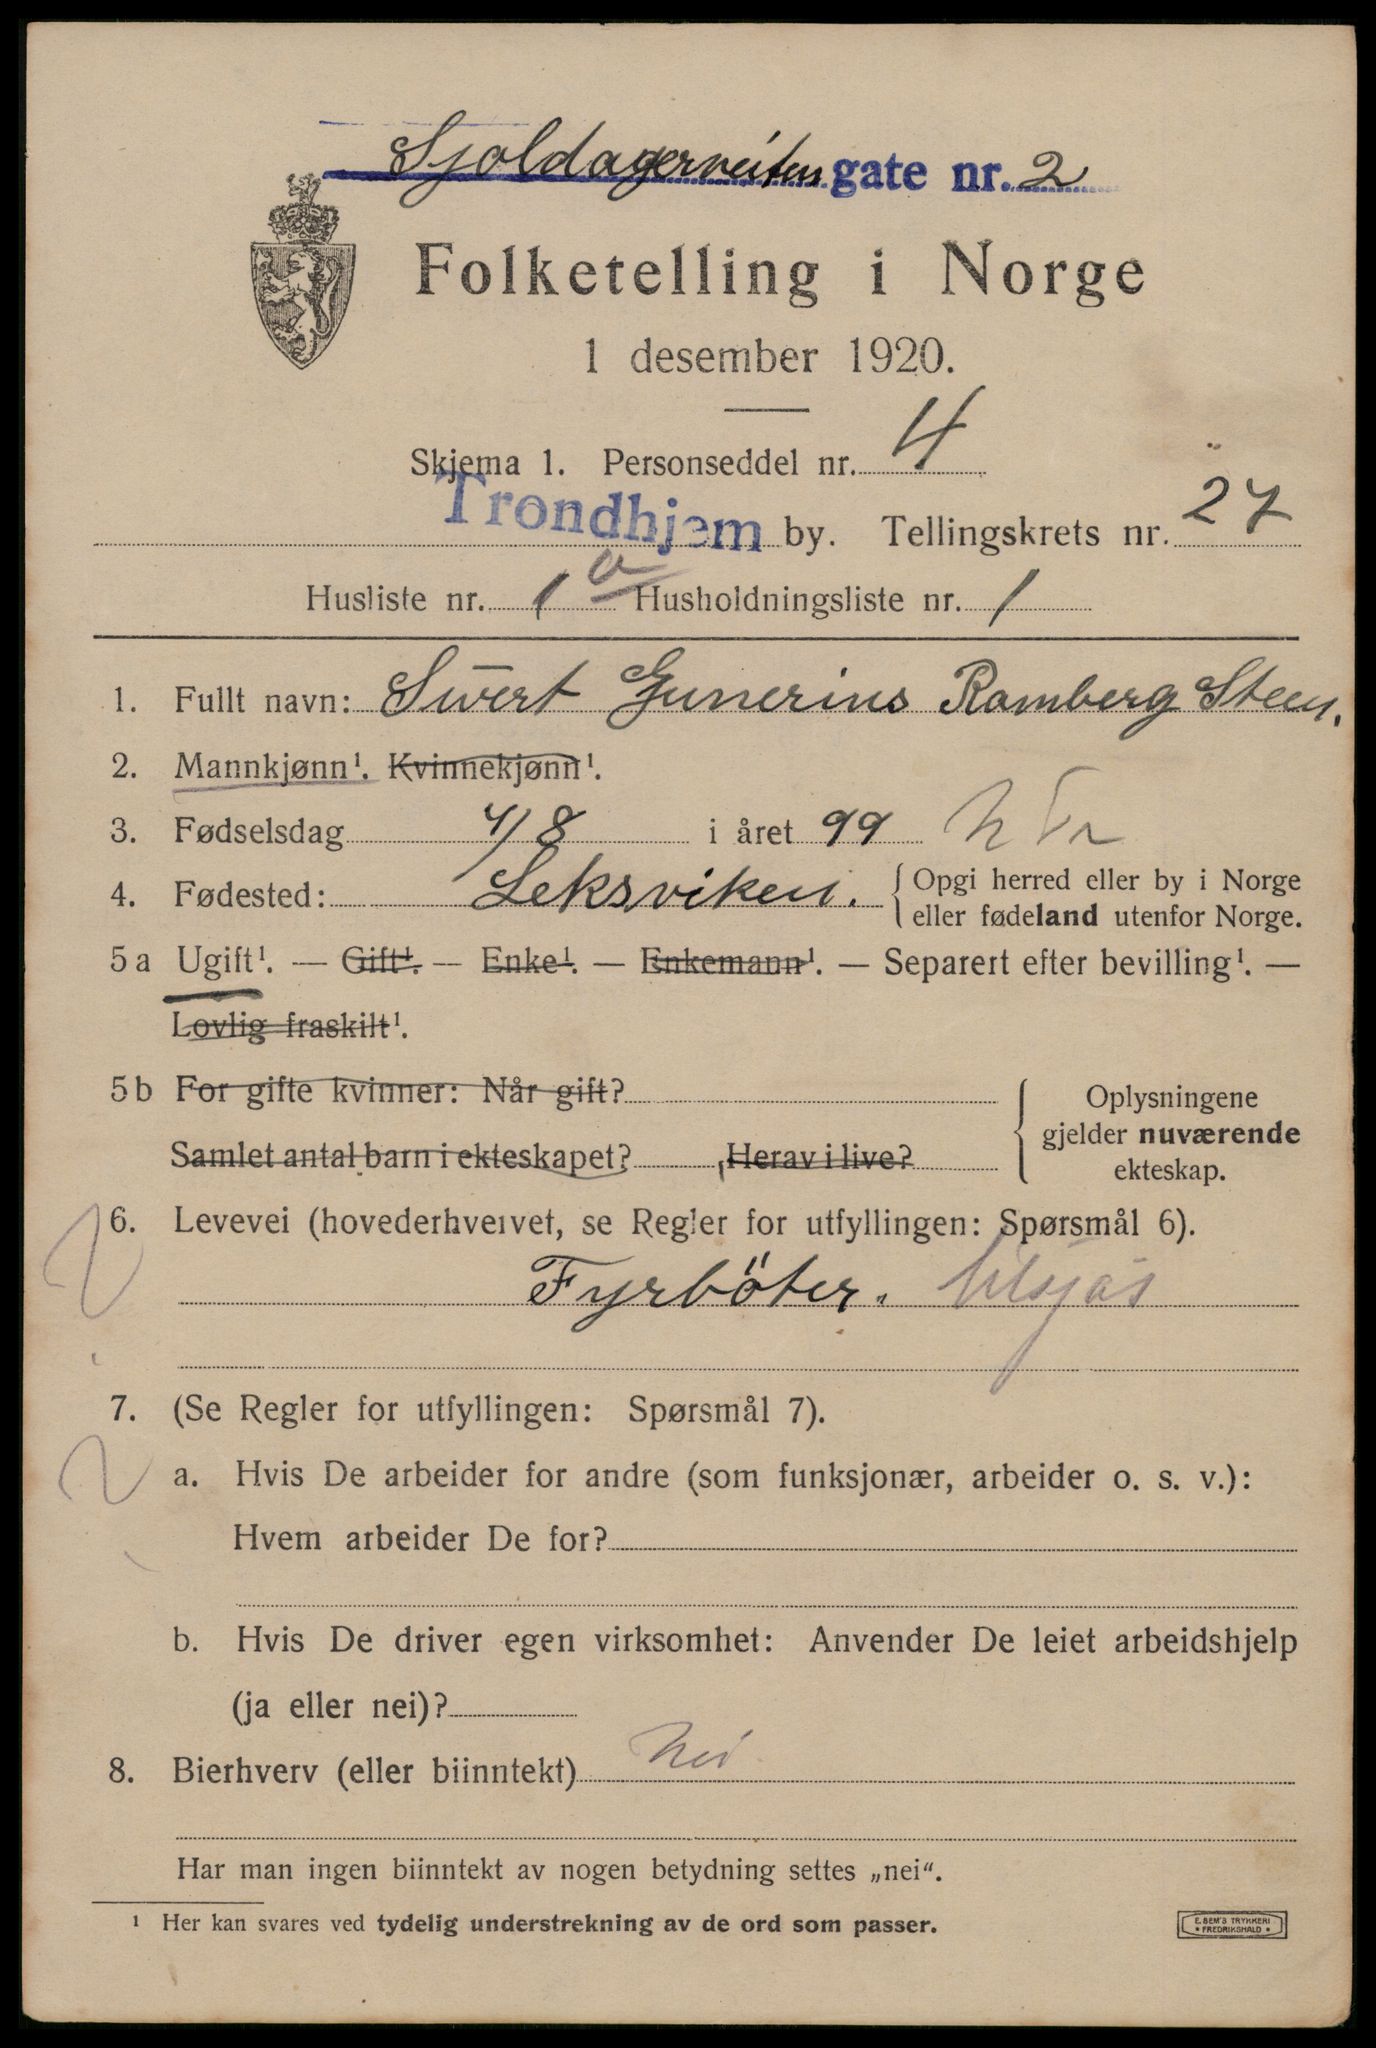 Sjoldagerveiten gate nr. 2
Folketelling i Norge
1 desember 1920.
Skjema 1. Personseddel nr. 4
Trondhjem by. Tellingskrets nr. 27
Husliste nr. 1 a Husholdningsliste nr. 1
1. Fullt navn: Sivert Gunerius Ramberg Steen.
2. Mannkjønn¹. Kvinnekjønn¹.
3. Fødselsdag 4/8 i året 99
4. Fødested: Leksviken. Opgi herred eller by i Norge
eller fødeland utenfor Norge.
5a Ugift¹. — Gift¹. — Enke¹. — Enkemann¹. — Separert efter bevilling¹. —
Lovlig fraskilt¹.
5b For gifte kvinner: Når gift?
Samlet antal barn i ekteskapet? Herav i live?
Oplysningene
gjelder nuværende
ekteskap.
6. Levevei (hovederhvervet, se Regler for utfyllingen: Spørsmål 6).
Fyrböter. utsjøs
7. (Se Regler for utfyllingen: Spørsmål 7).
a. Hvis De arbeider for andre (som funksjonær, arbeider o. s. v.):
Hvem arbeider De for?
b. Hvis De driver egen virksomhet: Anvender De leiet arbeidshjelp
(ja eller nei)?
8. Bierhverv (eller biinntekt) Nei
Har man ingen biinntekt av nogen betydning settes „nei“.
¹ Her kan svares ved tydelig understrekning av de ord som passer.
E. SEM'S TRYKKERI
• FREDRIKSHALD •